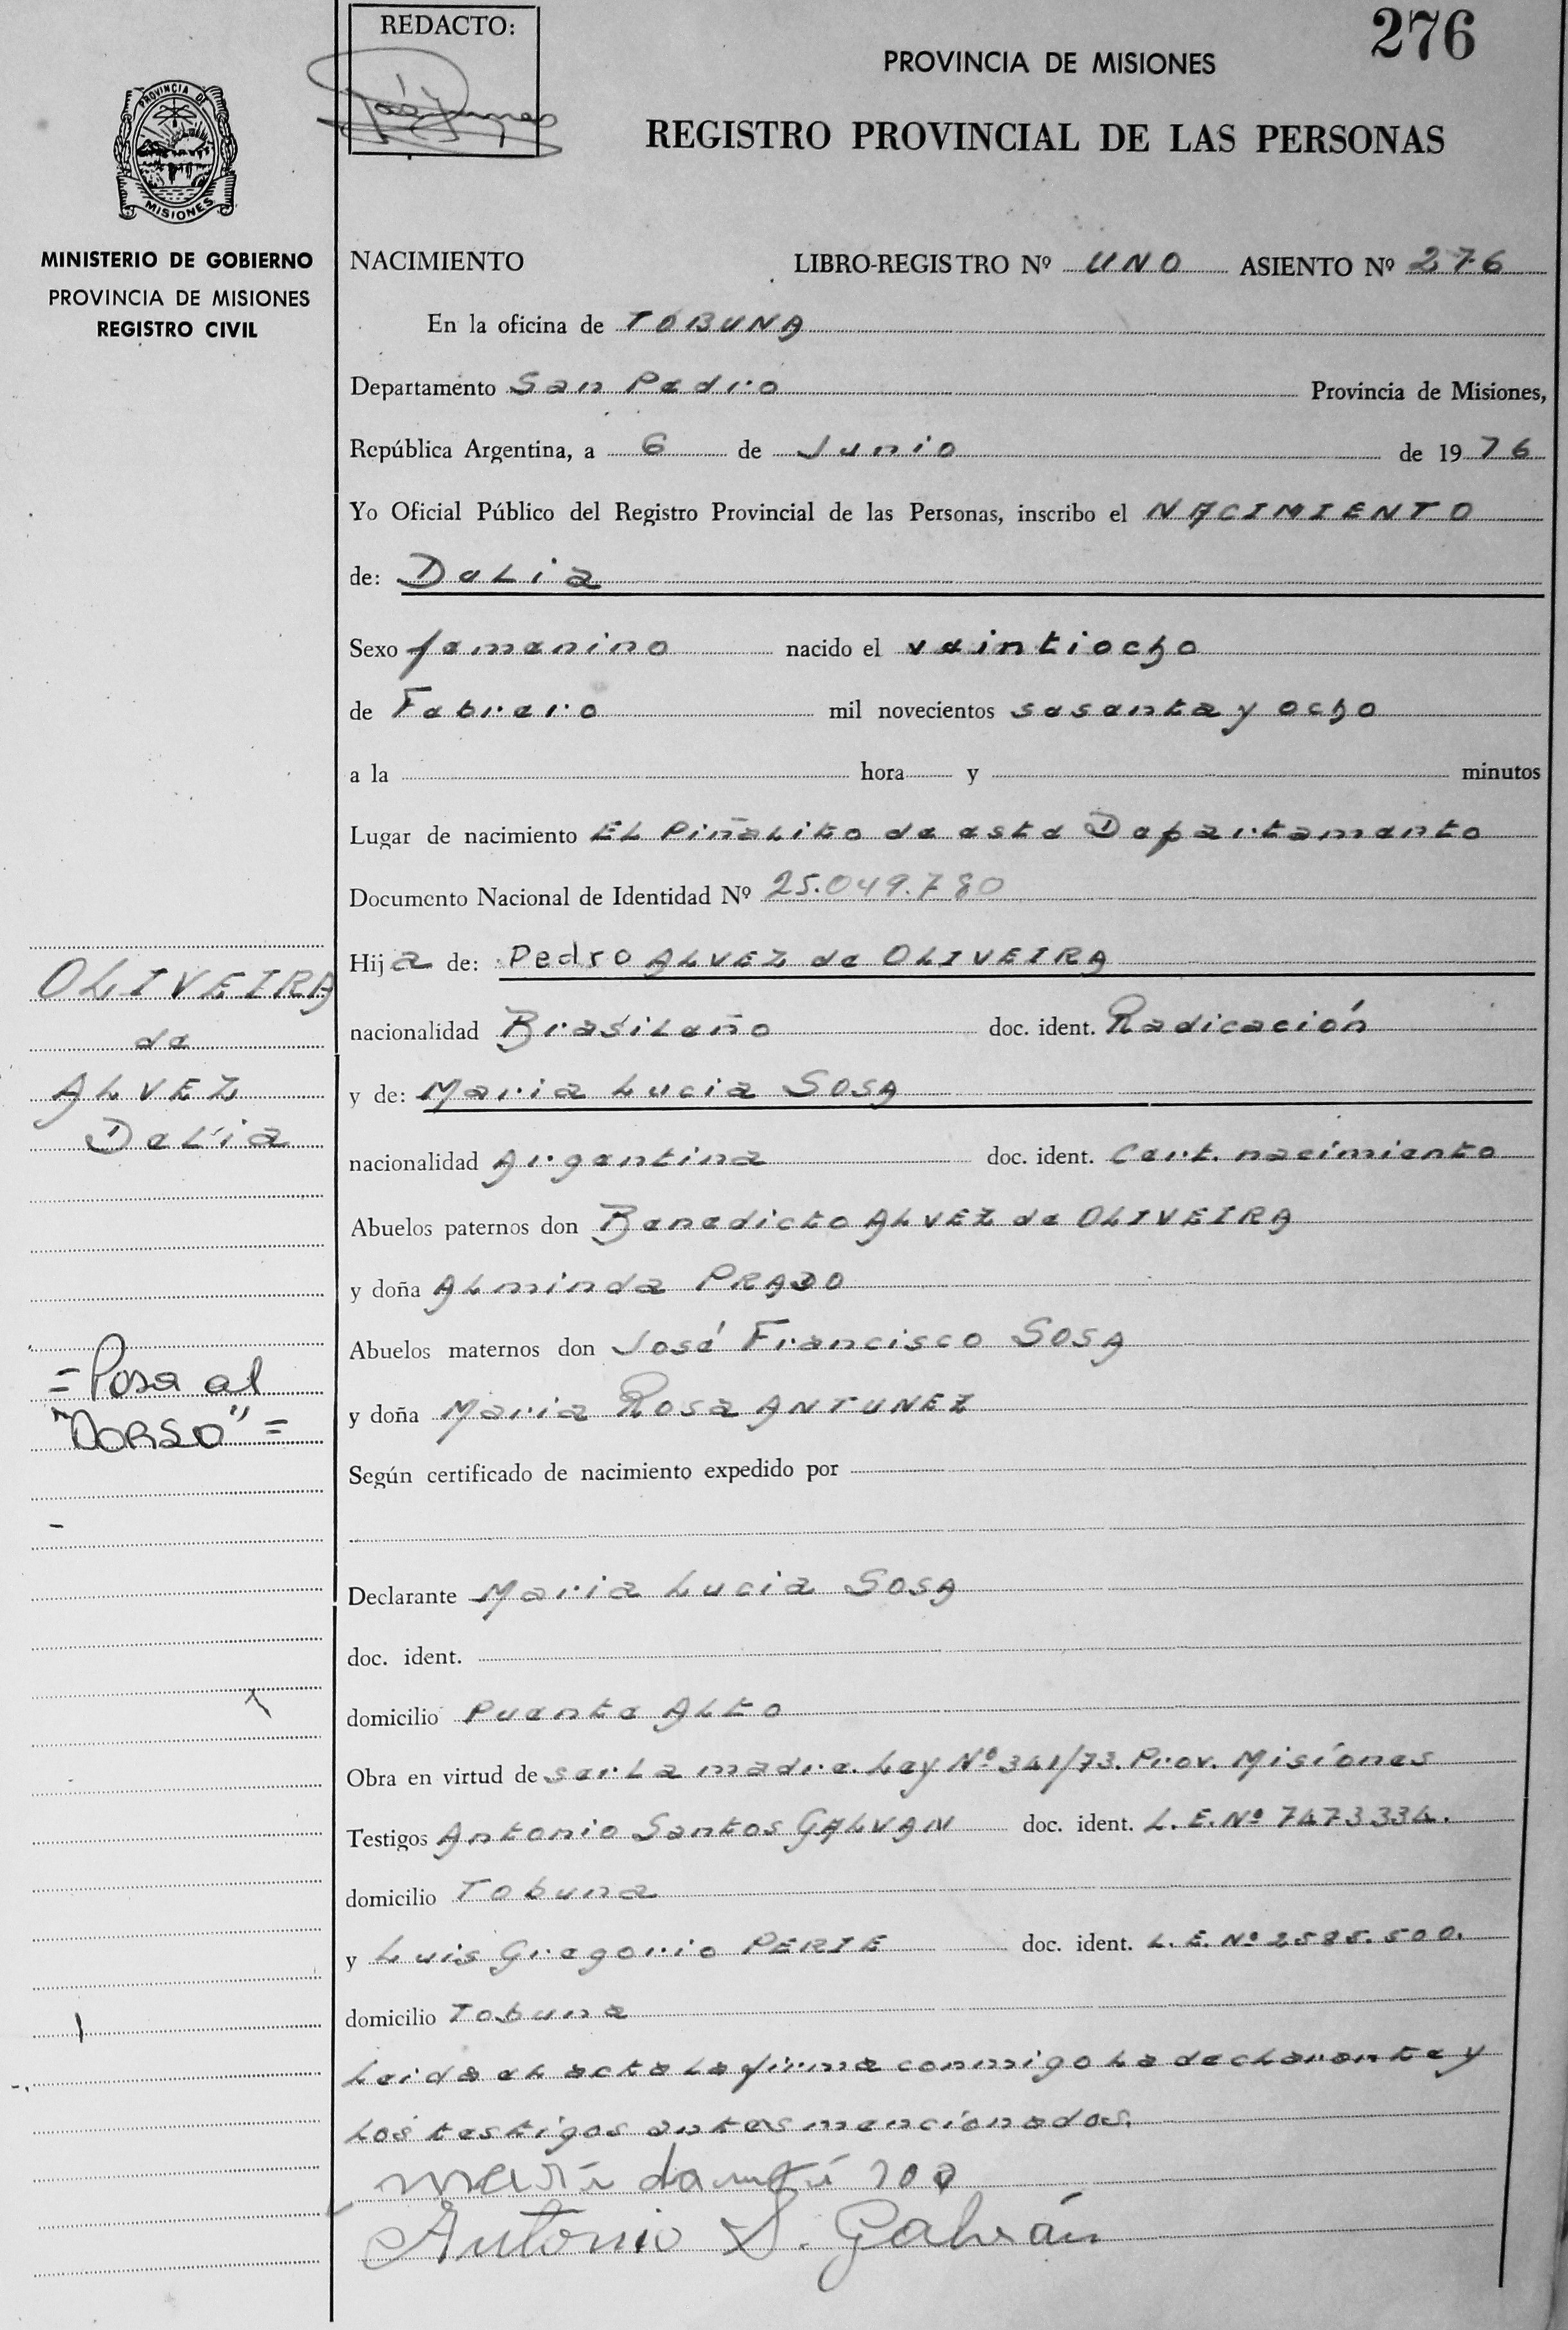 REDACTO:
276
PROVINCIA DE MISIONES
REGISTRO PROVINCIAL DE LAS PERSONAS
PROVINCIA DE
MISIONES
MINISTERIO DE GOBIERNO
PROVINCIA DE MISIONES
REGISTRO CIVIL
NACIMIENTO LIBRO-REGISTRO Nº UNO ASIENTO Nº 276
En la oficina de TOBUNA
Departamento San Pedro Provincia de Misiones,
República Argentina, a 6 de Junio de 1976
Yo Oficial Público del Registro Provincial de las Personas, inscribo el NACIMIENTO
de: Delia
Sexo femenino nacido el veintiocho
de Febrero mil novecientos sesenta y ocho
a la hora y minutos
Lugar de nacimiento EL Piñalito de este Departamento
Documento Nacional de Identidad Nº 25.049.780
Hija de: Pedro ALVEZ de OLIVEIRA
nacionalidad Brasileño doc. ident. Radicación
y de: Maria Lucia SOSA
nacionalidad Argentina doc. ident. Cert. nacimiento
Abuelos paternos don Benedicto ALVEZ de OLIVEIRA
y doña ALminda PRADO
Abuelos maternos don José Francisco SOSA
y doña Maria Rosa ANTUNEZ
Según certificado de nacimiento expedido por
Declarante Maria Lucia SOSA
doc. ident.
domicilio Puente ALto
Obra en virtud de ser La madre. Ley Nº 341/73. Prov. Misiones
Testigos Antonio Santos GALVAN doc. ident. L.E.Nº 7473334.
domicilio Tobuna
y Luis Gregorio PERIE doc. ident. L.E.Nº 2585.500.
domicilio Tobuna
Leida el acta la firma conmigo la declarante y
Los testigos antes mencionados.
Antonio S. Galván
OLIVEIRA
de
ALVEZ
Delia
=Pasa al
"DORSO"=